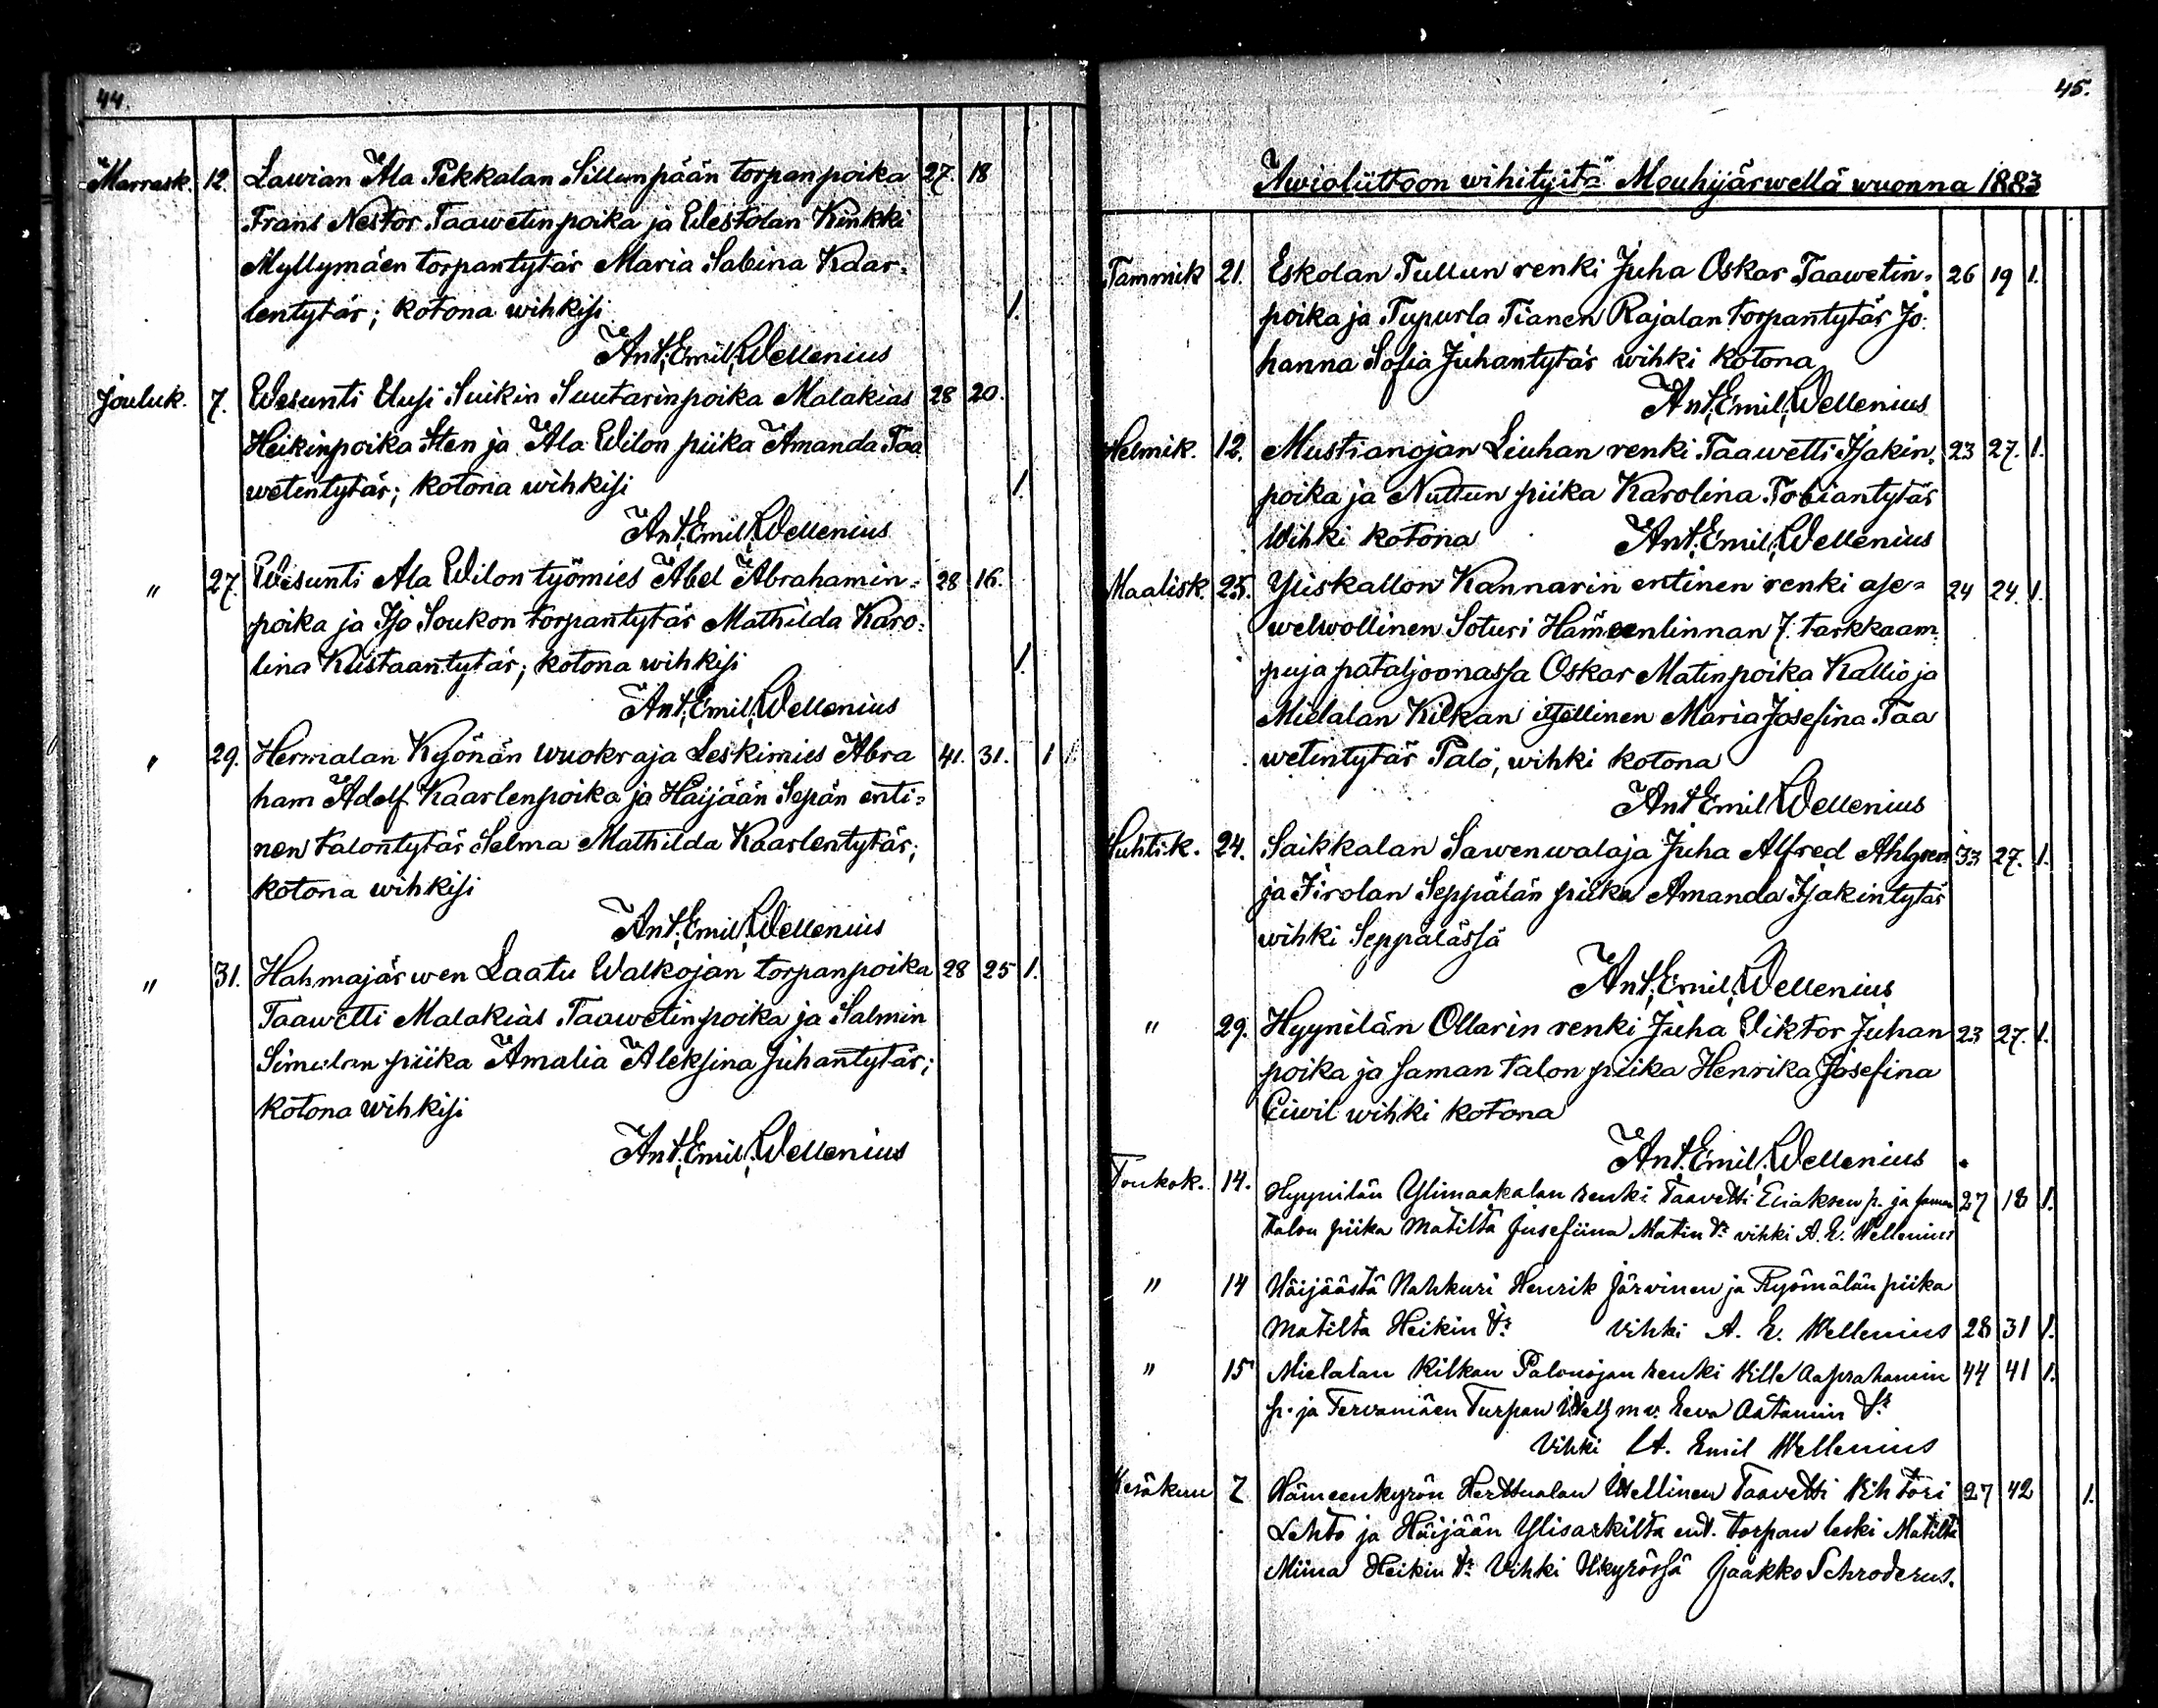 44.
Marrask. 12. Lawian Ala Pekkalan Sillunpään torpanpoika 27. 18
Frans Nestor Taawetinpoika ja Westolan Kinkki
Myllymäen torpantytär Maria Sabina Kaar-
lentytär; kotona wihkisi 1.
Ant. Emil. Wellenius
Jouluk. 7. Wesunti Uusi Suikin Suutarinpoika Malakias 28 20.
Heikinpoika Sten ja Ala Wilon piika Amanda Taa
wetintytär; kotona wihkisi 1.
Ant. Emil. Wellenius
" 27. Wesunti Ala Wilon työmies Abel Abrahamin- 28 16.
poika ja Iso Soukon torpantytär Mathilda Karo-
lina Kustaantytär; kotona wihkisi 1.
Ant. Emil. Wellenius
" 29. Hermalan Kyönän wuokraja Leskimies Abra 41. 31. 1 1.
ham Adolf Kaarlenpoika ja Häijään Sepän enti-
nen talontytär Selma Mathilda Kaarlentytär;
kotona wihkisi
Ant. Emil. Wellenius
" 31. Hahmajärwen Laatu Walkojan torpanpoika 28 25 1.
Taawetti Malakias Taawetinpoika ja Salmin
Simulan piika Amalia Aleksina Juhantytär;
kotona wihkisi
Ant. Emil. Wellenius
45.
Awioliittoon wihityitä Mouhijärwellä wuonna 1883
Tammik 21. Eskolan Tullun renki Juha Oskar Taawetin- 26 19 1.
poika ja Tupurla Tianen Rajalan torpantytär Jo-
hanna Sofia Juhantytär wihki kotona
Ant. Emil. Wellenius
Helmik. 12. Mustianojan Liuhan renki Taawetti Isakin- 23 27. 1.
poika ja Nuttun piika Karolina Tobiantytär
Wihki kotona Ant. Emil. Wellenius
Maalisk. 25. Yliskallon Kannarin entinen renki ase- 24 24. 1.
welwollinen Soturi Hämeenlinnan 7. tarkkaam
puja pataljoonassa Oskar Matinpoika Kallio ja
Mielalan Kilkan itsellinen Maria Josefina Taa
wetintytär Palo, wihki kotona
Ant. Emil. Wellenius
Huhtik. 24. Saikkalan Sawenwalaja Juha Alfred Ahlgren 33 27. 1.
ja Tirolan Seppälän piika Amanda Isakintytär
wihki Seppälässä
Ant. Emil. Wellenius
" 29. Hyynilän Ollarin renki Juha Viktor Juhan 23 27. 1.
poika ja saman talon piika Henrika Josefina
Ciwil wihki kotona
Ant. Emil. Wellenius
Toukok. 14. Hyynilän Ylimaakalan renki Taavetti Eliaksen p. ja saman 27 18 1.
talon piika Matilta Jusefiina Matin tr vihki A. E. Wellenius
" 14 Häijäästä Nahkuri Henrik Järvinen ja Ryömälän piika
Matilta Heikin tr Vihki A. E. Wellenius 28 31 1.
" 15 Mielalan Kilkan Palonojan renki Ville Aaprahamin 44 41 1.
p. ja Tervamäen Turpan m v. Eeva Aatamin tr
Vihki A. Emil Wellenius
Kesäkuu 7 Hämeenkyrön Herttualan Itsellinen Taavetti Vihtori 27 42 1.
Lehto ja Häijään Ylisarkilta ent. torpan leski Matilta
Miina Heikin tr Vihki Hkyrössä Jaakko Schroderus.